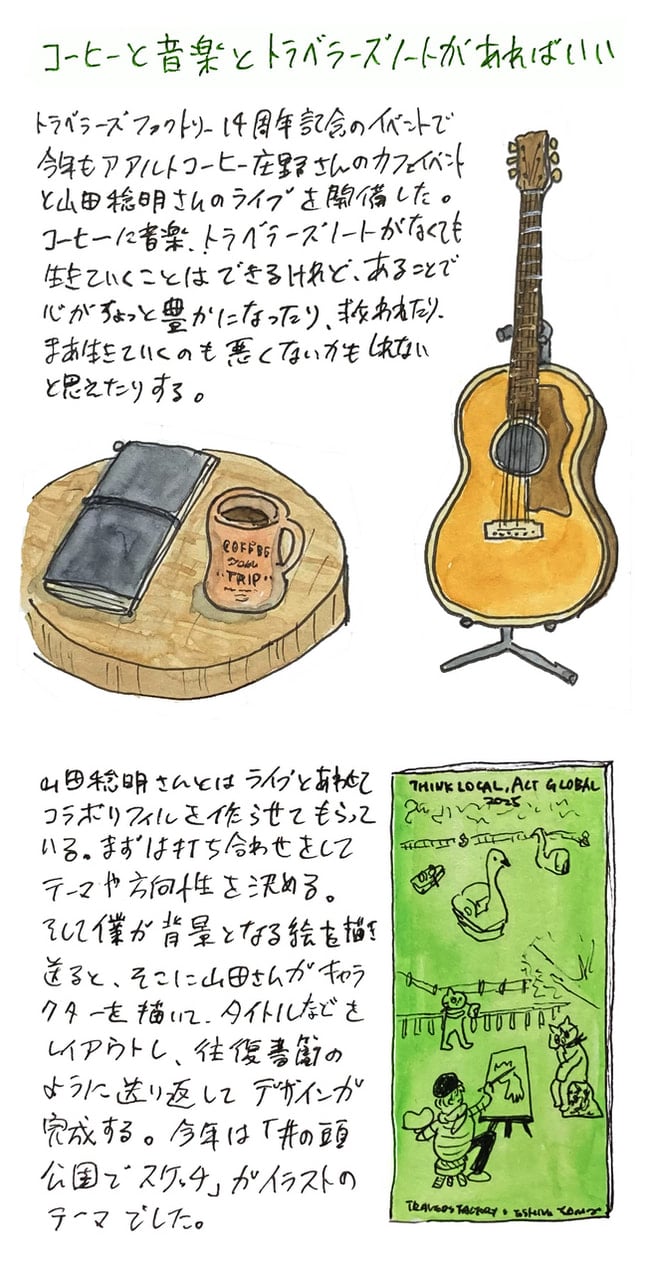 コーヒーと音楽とトラベラーズノートがあればいい
トラベラーズファクトリー14周年記念のイベントで
今年もアアルトコーヒー庄野さんのカフェイベント
と山田稔明さんのライブを開備した。
コーヒーに音楽、トラベラーズノートがなくても
生きていくことはできるけれど、あることで
心がちょっと豊かになったり、救われたり、
まあ生きていくのも悪くないかもしれない
と思えたりする。
COFFEE
TRIP
山田稔明さんとはライブとあわせて
コラボリフィルを作らせてもらって
いる。まずは打ち合わせをして
テーマや方向性を決める。
そして僕が背景となる絵を描き
送ると、そこに山田さんがキャラ
クターを描いて、タイトルなどを
レイアウトし、往復書簡の
ように送り返してデザインが
完成する。今年は「井の頭
公園でスケッチ」がイラストの
テーマでした。
THINK LOCAL, ACT GLOBAL
2025
FACTORY